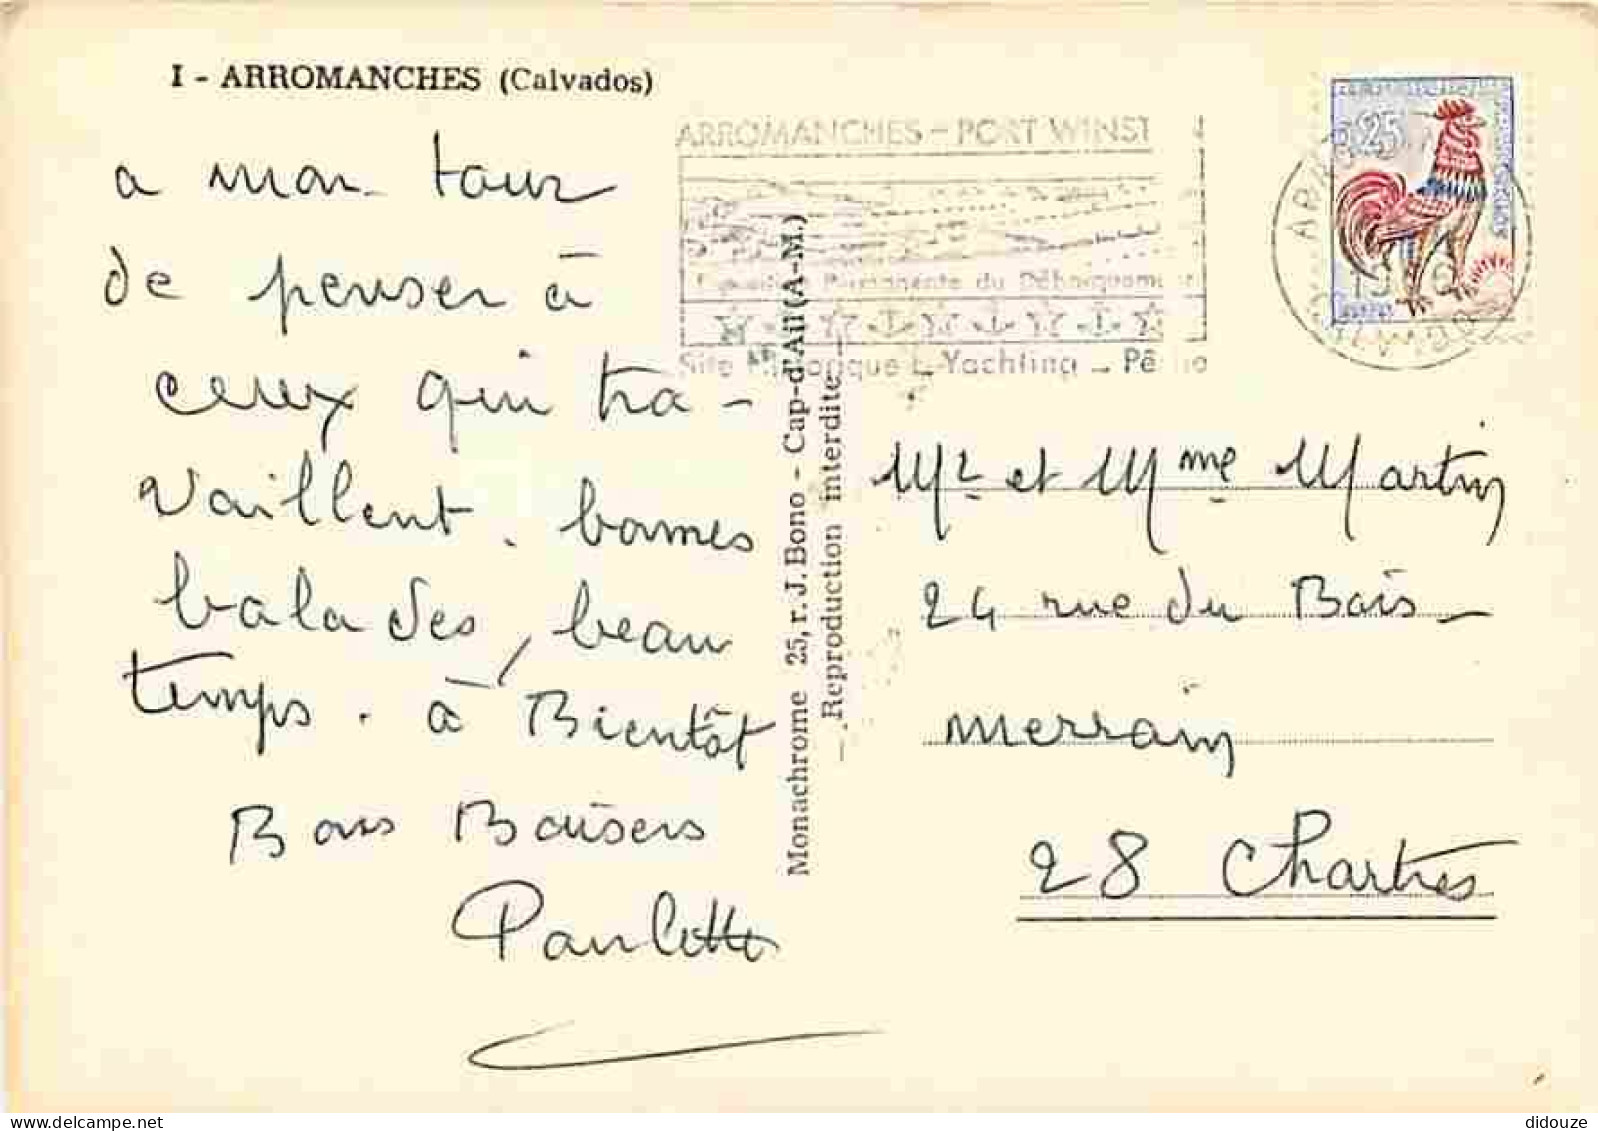 I - ARROMANCHES (Calvados)
a mon tour
de penser à
ceux qui tra-
vaillent. bonnes
balades, beau
temps. à Bientôt
Bons Baisers
Paulette
ARROMANCHES - PORT WINST
Permanente du Débarquement
Site Historique - Yachting - Pêche
Monachrome 25, r. J. Bono - Cap-d'Ail (A-M.)
— Reproduction interdite —
0,25
Mr et Mme Martin
24 rue du Bois-
merrain
28 Chartres
didouze